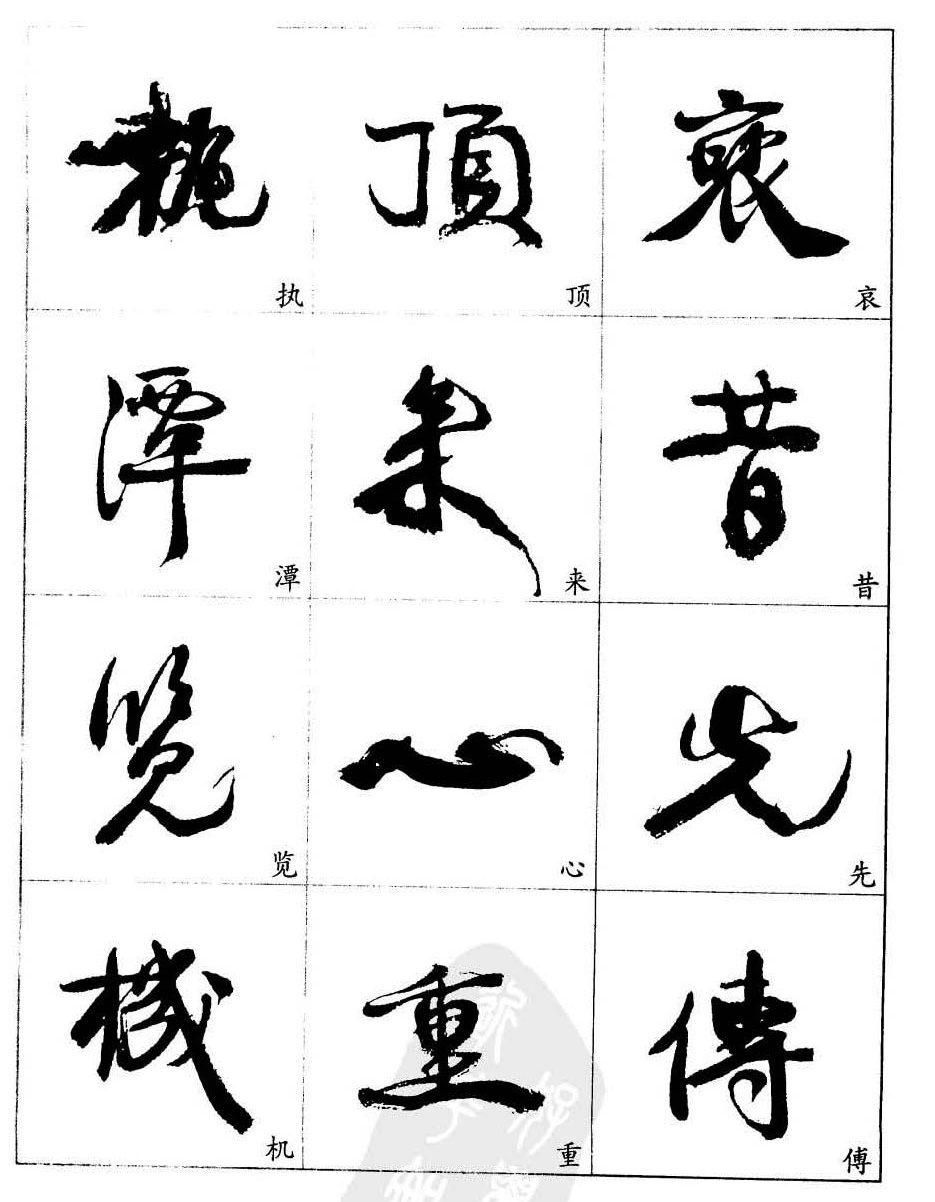 執 頂
执 顶 哀
潭 来 昔
潭 来 昔
览 心 先
览 心 先
機 重 傳
机 重 傅